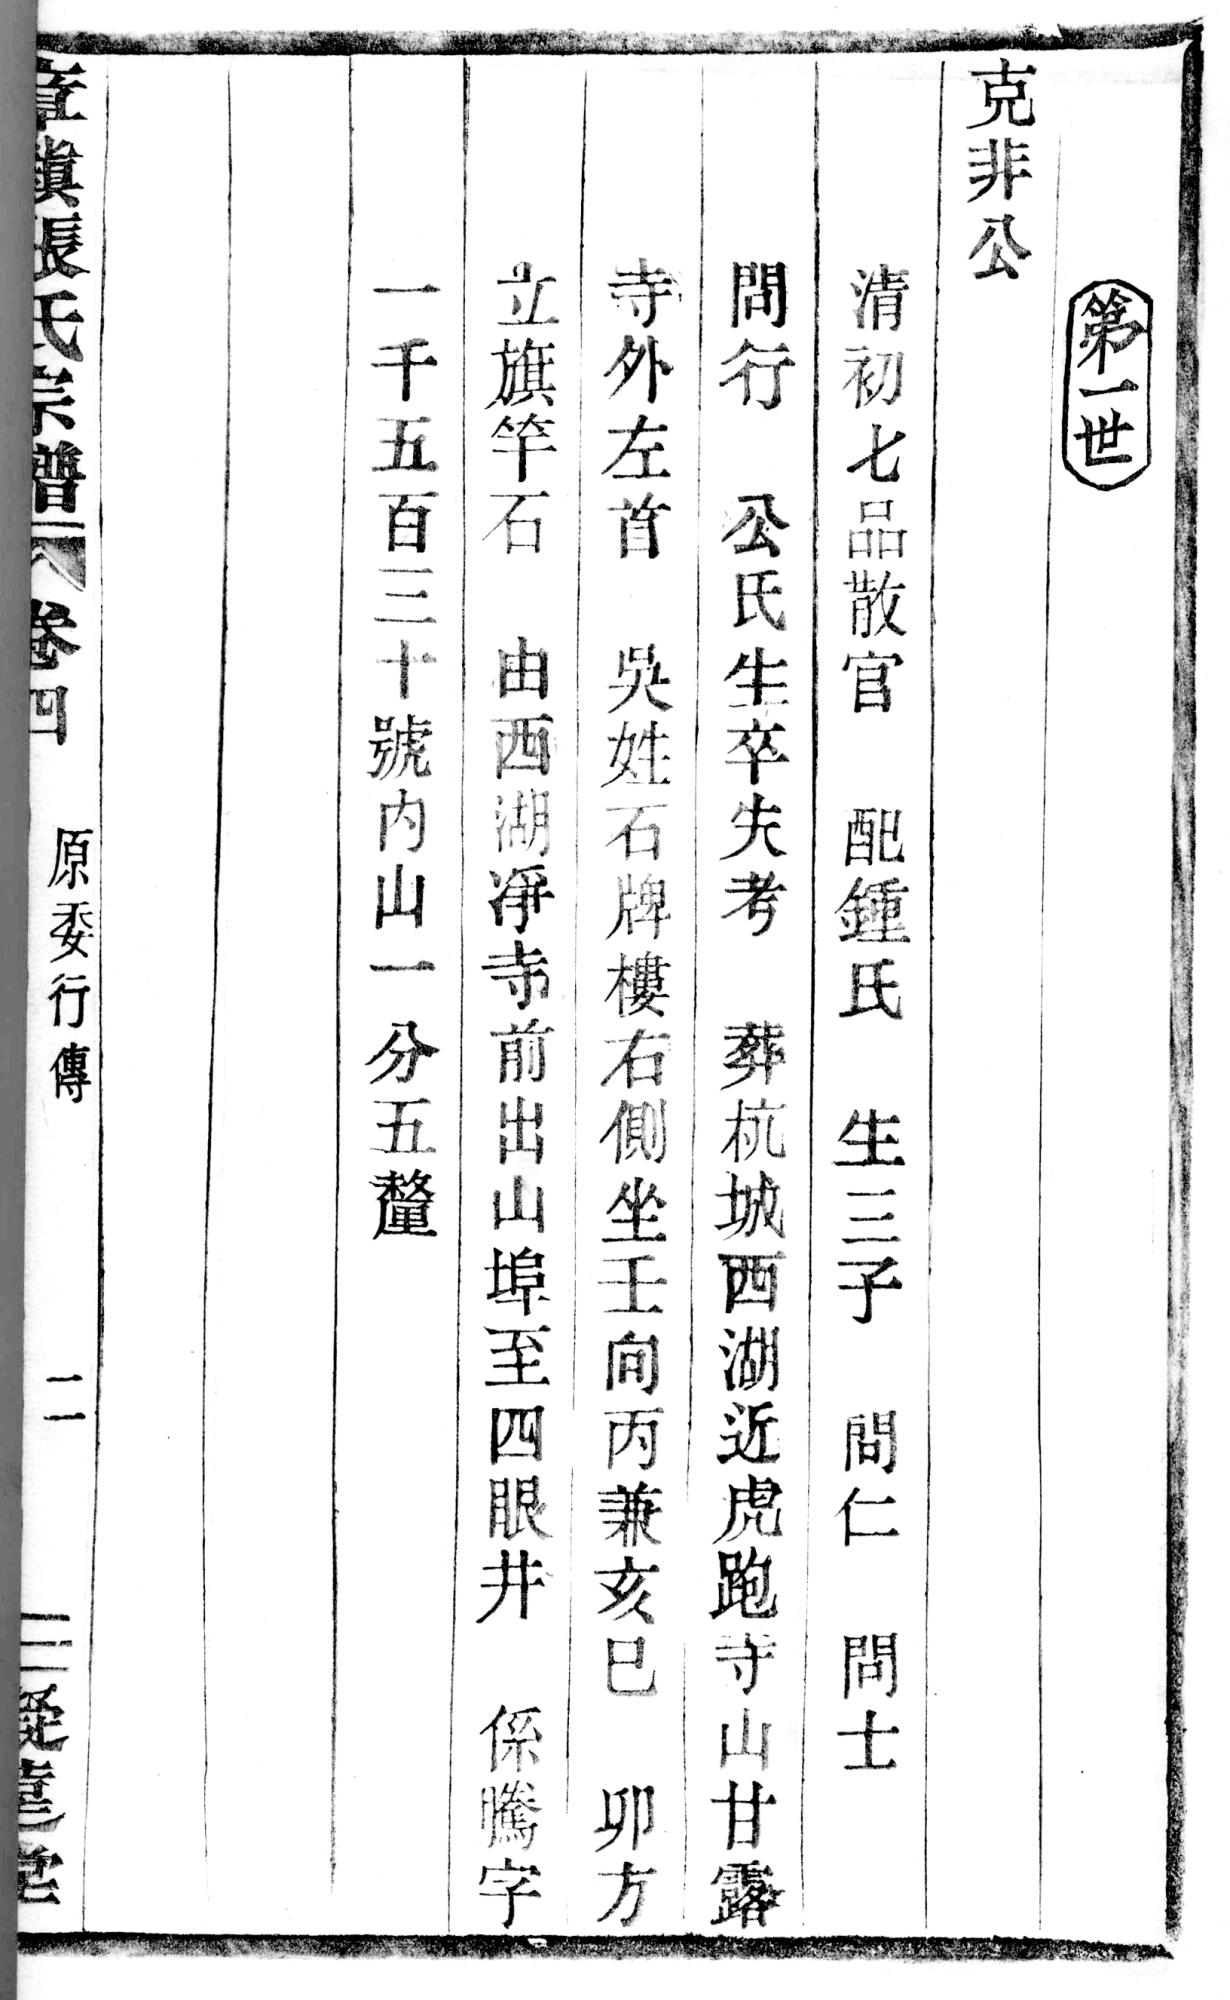 第一世
克非公
清初七品散官　配鍾氏　生三子　問仁　問士
問行　公氏生卒失考　葬杭城西湖近虎跑寺山甘露
寺外左首　吳姓石牌樓右側坐壬向丙兼亥巳　卯方
立旗竿石　由西湖凈寺前出山埠至四眼井　係騰字
一千五百三十號內山一分五釐
章鎭張氏宗譜　卷四　原委行傳　二　三